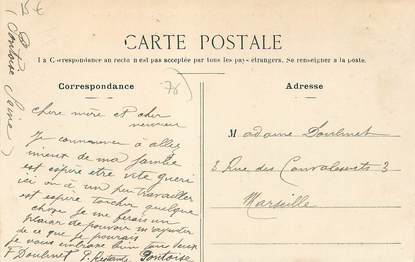 15 €
(Pontoise Seine)
CARTE POSTALE
La Correspondance au recto n'est pas acceptée par tous les pays étrangers. Se renseigner à la poste.
Correspondance
Adresse
(78)
chere mère et cher
Je commence à aller
mieut de ma
est espere etre vite gueri
ici on à un peu travailler
est espere toucher quelque
chose je me ferais un
plaisir de pouvoir
de ce que je pourais
je vous embrase bien tous deux
F Doubnet P. Restante Pontoise
Madame Doubnet
3 Rue des 3
Marseille